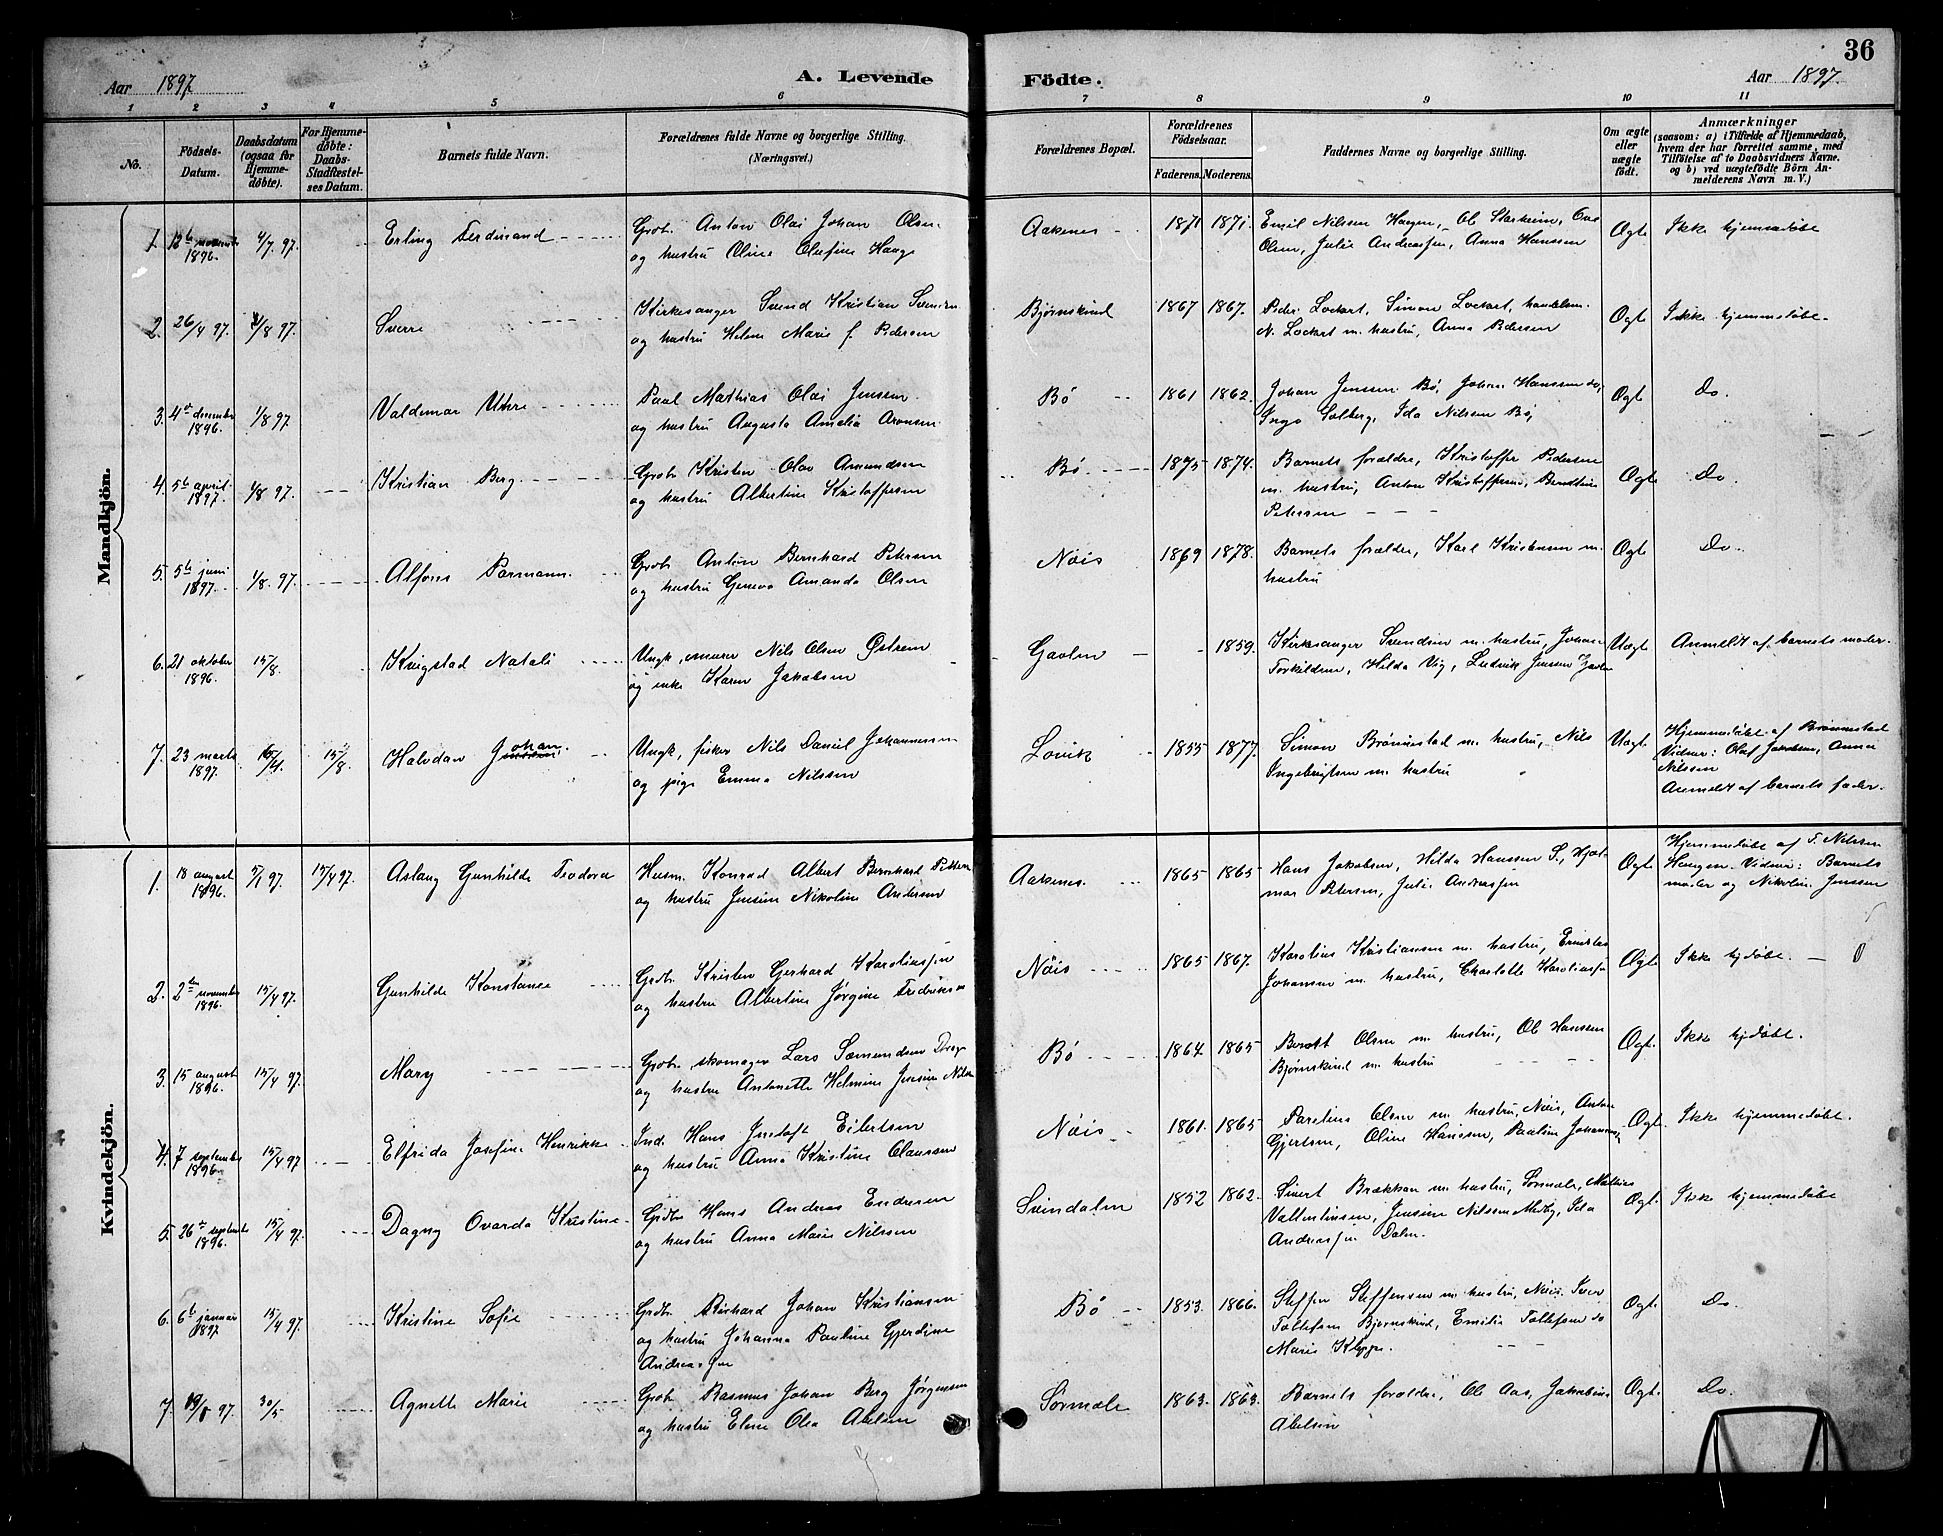 36
Aar 1897
A. Levende
Födte.
Aar 1897.
1 2 3 4 5 6 7 8 9 10 11
No.
Födsels-
Datum.
Daabsdatum
(ogsaa for
Hjemme-
döbte).
For Hjemme-
döbte:
Daabs-
Stadfæstel-
ses Datum.
Barnets fulde Navn.
Forældrenes fulde Navne og borgerlige Stilling.
(Næringsvei.)
Forældrenes Bopæl.
Forældrenes
Födselsaar.
Faderens. Moderens.
Faddernes Navne og borgerlige Stilling.
Om ægte
eller
uægte
födt.
Anmærkninger
(saasom: a) i Tilfælde af Hjemmedaab,
hvem der har forrettet samme, med
Tilföielse af to Daabsvidners Navne,
og b) ved uægtefödte Börn An-
melderens Navn m. V.)
Mandkjön.
1. 12te november 1896. 4/7 97. Erling Ferdinand
Grbr. Anton Olai Johan Olsen
og hustru Oline Olufine Hauge
Aakenes 1871 1871.
Emil Nilssen Haugen, Ol. Starheim,
Olsen, Julie Andreassen, Anna Hanssen
Ægte Ikke hjemmedøbt
2. 26/4 97. 1/8 97. Sverre
Kirkesanger Svend Kristian Svendsen
og hustru Helene Marie f. Pedersen
Bjørnskind 1867 1867.
Peder Lockert, Simon Lockert, handelsm.
N. Lockert m. hustru, Anna Pedersen
Ægte Ikke hjemmedøbt.
3. 4de december 1896. 1/8 97. Valdemar
Paal Mathias Olai Jensen
og hustru Augusta Amalia Aronsen
Bø 1861 1862.
Johan Jenssen Bø, Johan Hanssen do,
Inga Solberg, Ida Nilssen Bø,
Ægt Do.
4. 5te april 1897. 1/8 97. Kristian Berg
Grbr. Kristen Olav Amundsen
og hustru Albertine Kristoffersen
Bø. 1875 1874.
Barnets forældre, Kristoffer Pedersen
m. hustru, Anton Kristoffersen,
Petersen
Ægte Do.
5. 5te juni 1897. 1/8. 97. Alfons Parmann
Grbr. Anton Bernhard Petersen
og hustru Geneva Amanda Olsen
Nøis 1869 1878.
Barnets forældre, Karl Kristensen m.
hustru
Ægte Do.
6. 21 oktober 1896. 15/8. Krigstad Natali
Ungk., murer Nils Olsen Østrem
og enke Karen Jakobsen
Gavlen 1859.
Kirkesanger Svendsen m. hustru, Johan
Torkildsen, Hilda Vig, Ludvik Jensen
Uægte Anmeldt af barnets moder.
7. 23 marts 1897. 15/8. Halvdan Johan
Ungk., fisker Nils Daniel Johannessen
og pige Emma Nilssen
Lovik 1855 1877.
Simon Brønnestad m. hustru, Nils
Ingebrigtsen m. hustru
Uægt Hjemmedøbt af Brønnestad
Vidner: Olaf Jakobsen, Anna
Nilssen
Anmeldt af barnets fader.
Kvindekjön.
1. 18 august 1896. 5/1 97. 15/4 97. Aslaug Gunhilde Teodora
Husm. Konrad Albert Bernhard Pettersen
og hustru Jensine Nikoline Andersen
Aakenes. 1865 1865
Hans Jakobsen, Hilda Hanssen S., Hjal-
mar Petersen, Julie Andreassen
Ægte Hjemmedøbt af F. Nilssen
Haugen. Vidner: Barnets
moder og Nikoline Jenssen
2. 2den november 1896. 15/4 97. Gunhilde Konstance
Grdbr. Kristen Gerhard Karoliussen
og hustru Albertine Jørgine Fredriksen
Nøis 1865 1867.
Karolius Kristiansen m. hustru,
Johansen m. hustru, Charlotte Karoliussen
Ægte Ikke hjdøbt.
3. 15 august 1896. 15/4 97. Mary
Grbr. skomager Lars Sæmundsen
og hustru Antonette Helmine Jensine Nilsen
Bø 1864 1865
Berntt Olsen m. hustru, Ol. Hanssen
Bjørnskind m. hustru
Ægt. Ikke hjdøbt.
4. 7 september 1896. 15/4 97 Elfrida Josefine Henrikke
Ind. Hans Justoft Eilertsen
og hustru Anna Kristine Claussen
Nøis 1861. 1865
Parelius Olsen m. hustru, Nøis, Anton
Gjertsen, Oline Hanssen, Pauline Johannes.
Ægt. Ikke hjemmedøbt.
5. 26de september 1896. 15/4 97. Dagny Ovarda Kristine
Grdbr. Hans Andreas Endresen
og hustru Anna Marie Nilssen
Svindalen 1852 1862.
Sivert Brækkan m. hustru, Sørmæle,
Vallentinsen, Jensine Nilssen Melby, Ida
Andreassen Dalen.
Ægt. Ikke hjemmedøbt
6. 6te januar 1897. 15/4 97. Kristine Sofie
Grdbr. Rikhard Johan Kristiansen
og hustru Johanna Pauline Gjerdine
Andreassen
Bø 1853. 1866.
Steffen Steffensen m. hustru, Nøis,
Tollefsen Bjørnskind, Emilie Tollefsen do
Marie Kleppe.
Ægt. Do.
7. 97. 30/5 Agnette Marie
Grbr. Rasmus Johan Berg Jørgensen
og hustru Elene Olea Abelsen
Sørmæle 1863. 1863.
Barnets forældre, Ol. Aas, Jakobine
Abelsen
Ægt. Do.